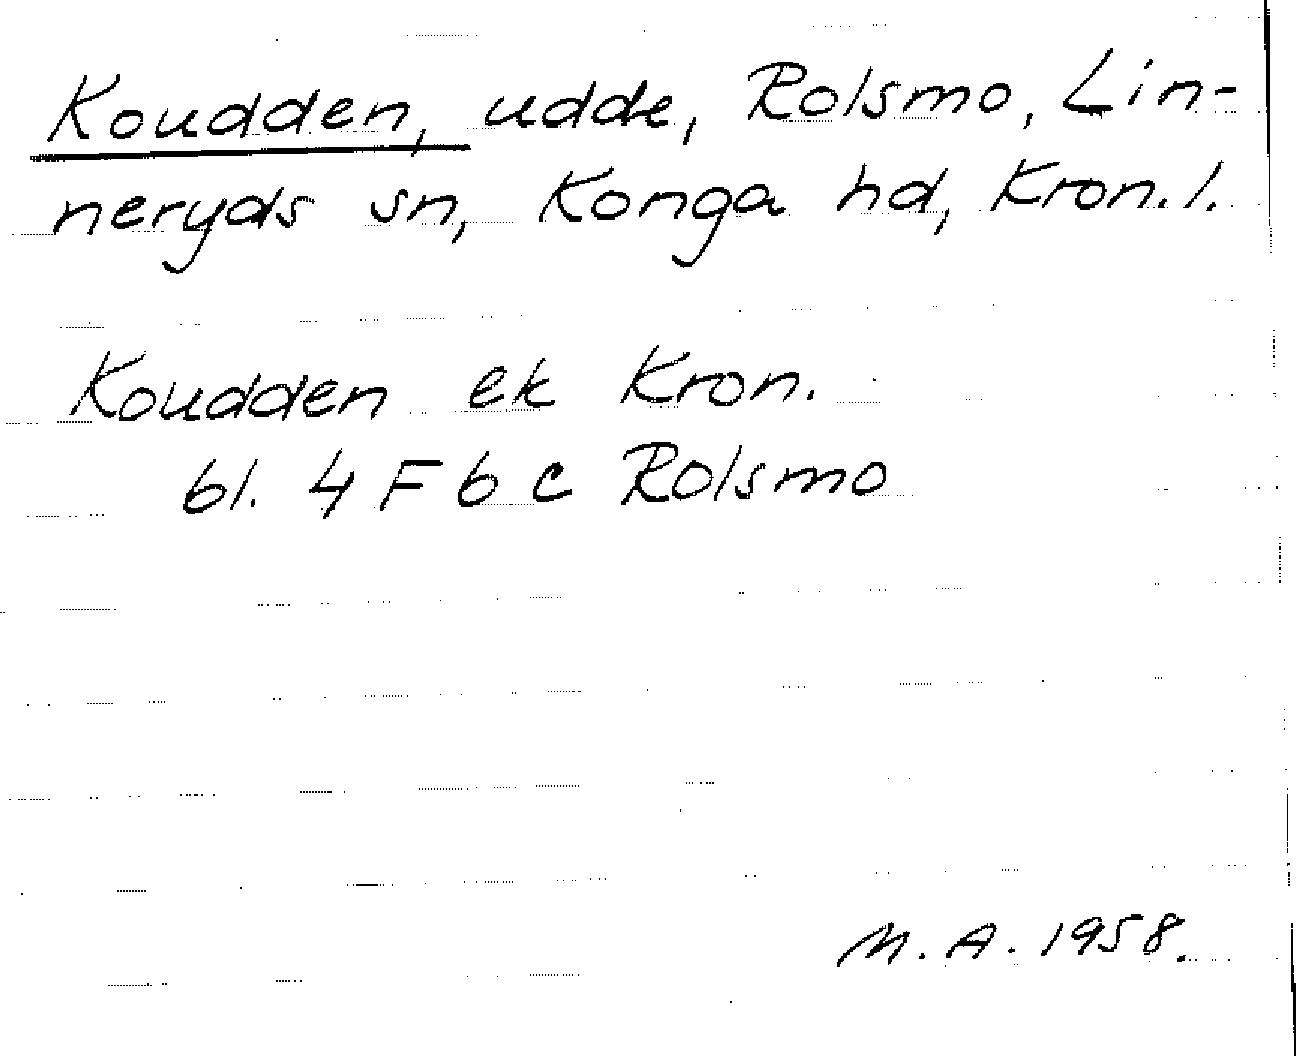 Koudden, udde, Rolsmo, Lin-
neryds sn, Konga hd, Kron.l.
Koudden ek Kron.
bl. 4 F 6 c Rolsmo
M.A. 1958.